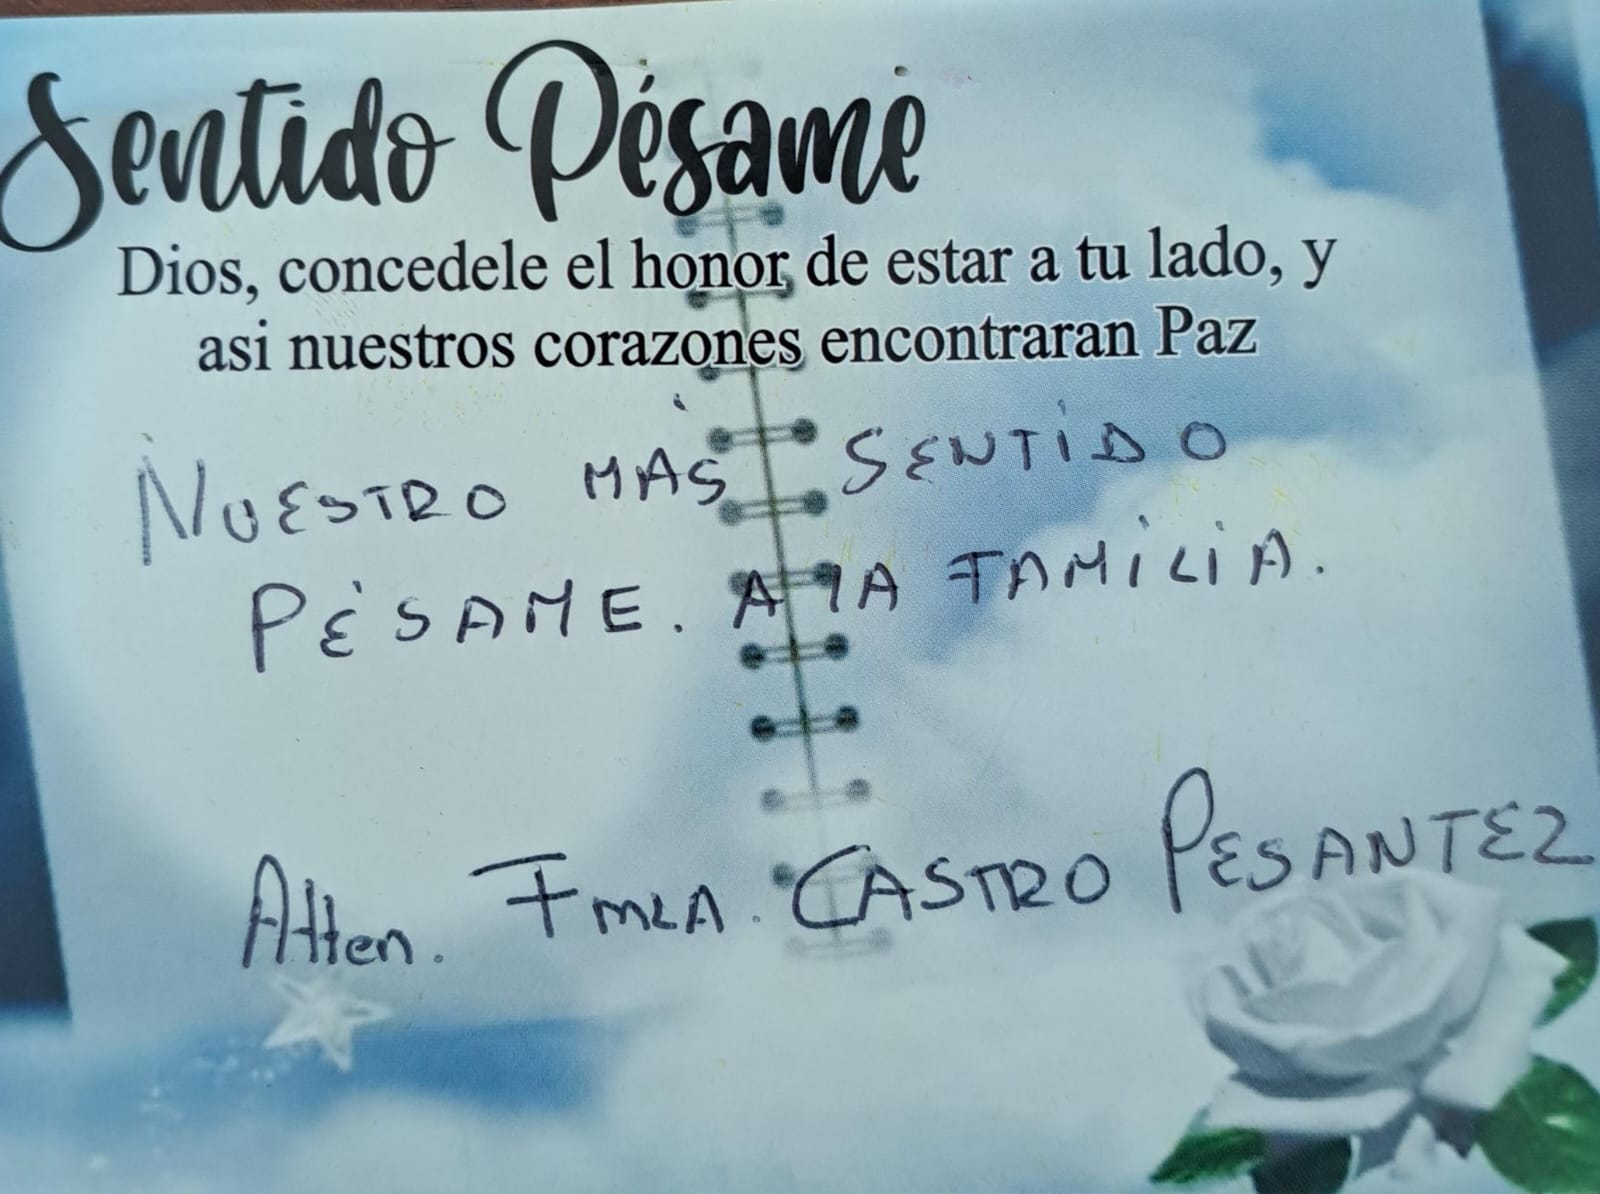 Sentido Pésame
Dios, concedele el honor, de estar a tu lado, y
asi nuestros corazones encontraran Paz
NUESTRO MAS SENTIDO
PÉSAME. A lA FAMiLiA.
Atten. FMLA. CASTRO PESANTEZ